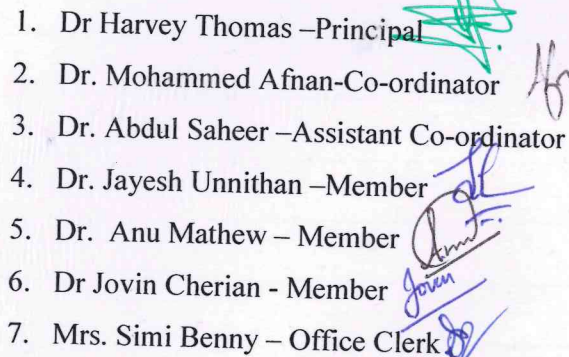 1. Dr Harvey Thomas –Principal
2. Dr. Mohammed Afnan-Co-ordinator
3. Dr. Abdul Saheer –Assistant Co-ordinator
4. Dr. Jayesh Unnithan –Member
5. Dr. Anu Mathew – Member
6. Dr Jovin Cherian - Member Jovin
7. Mrs. Simi Benny – Office Clerk